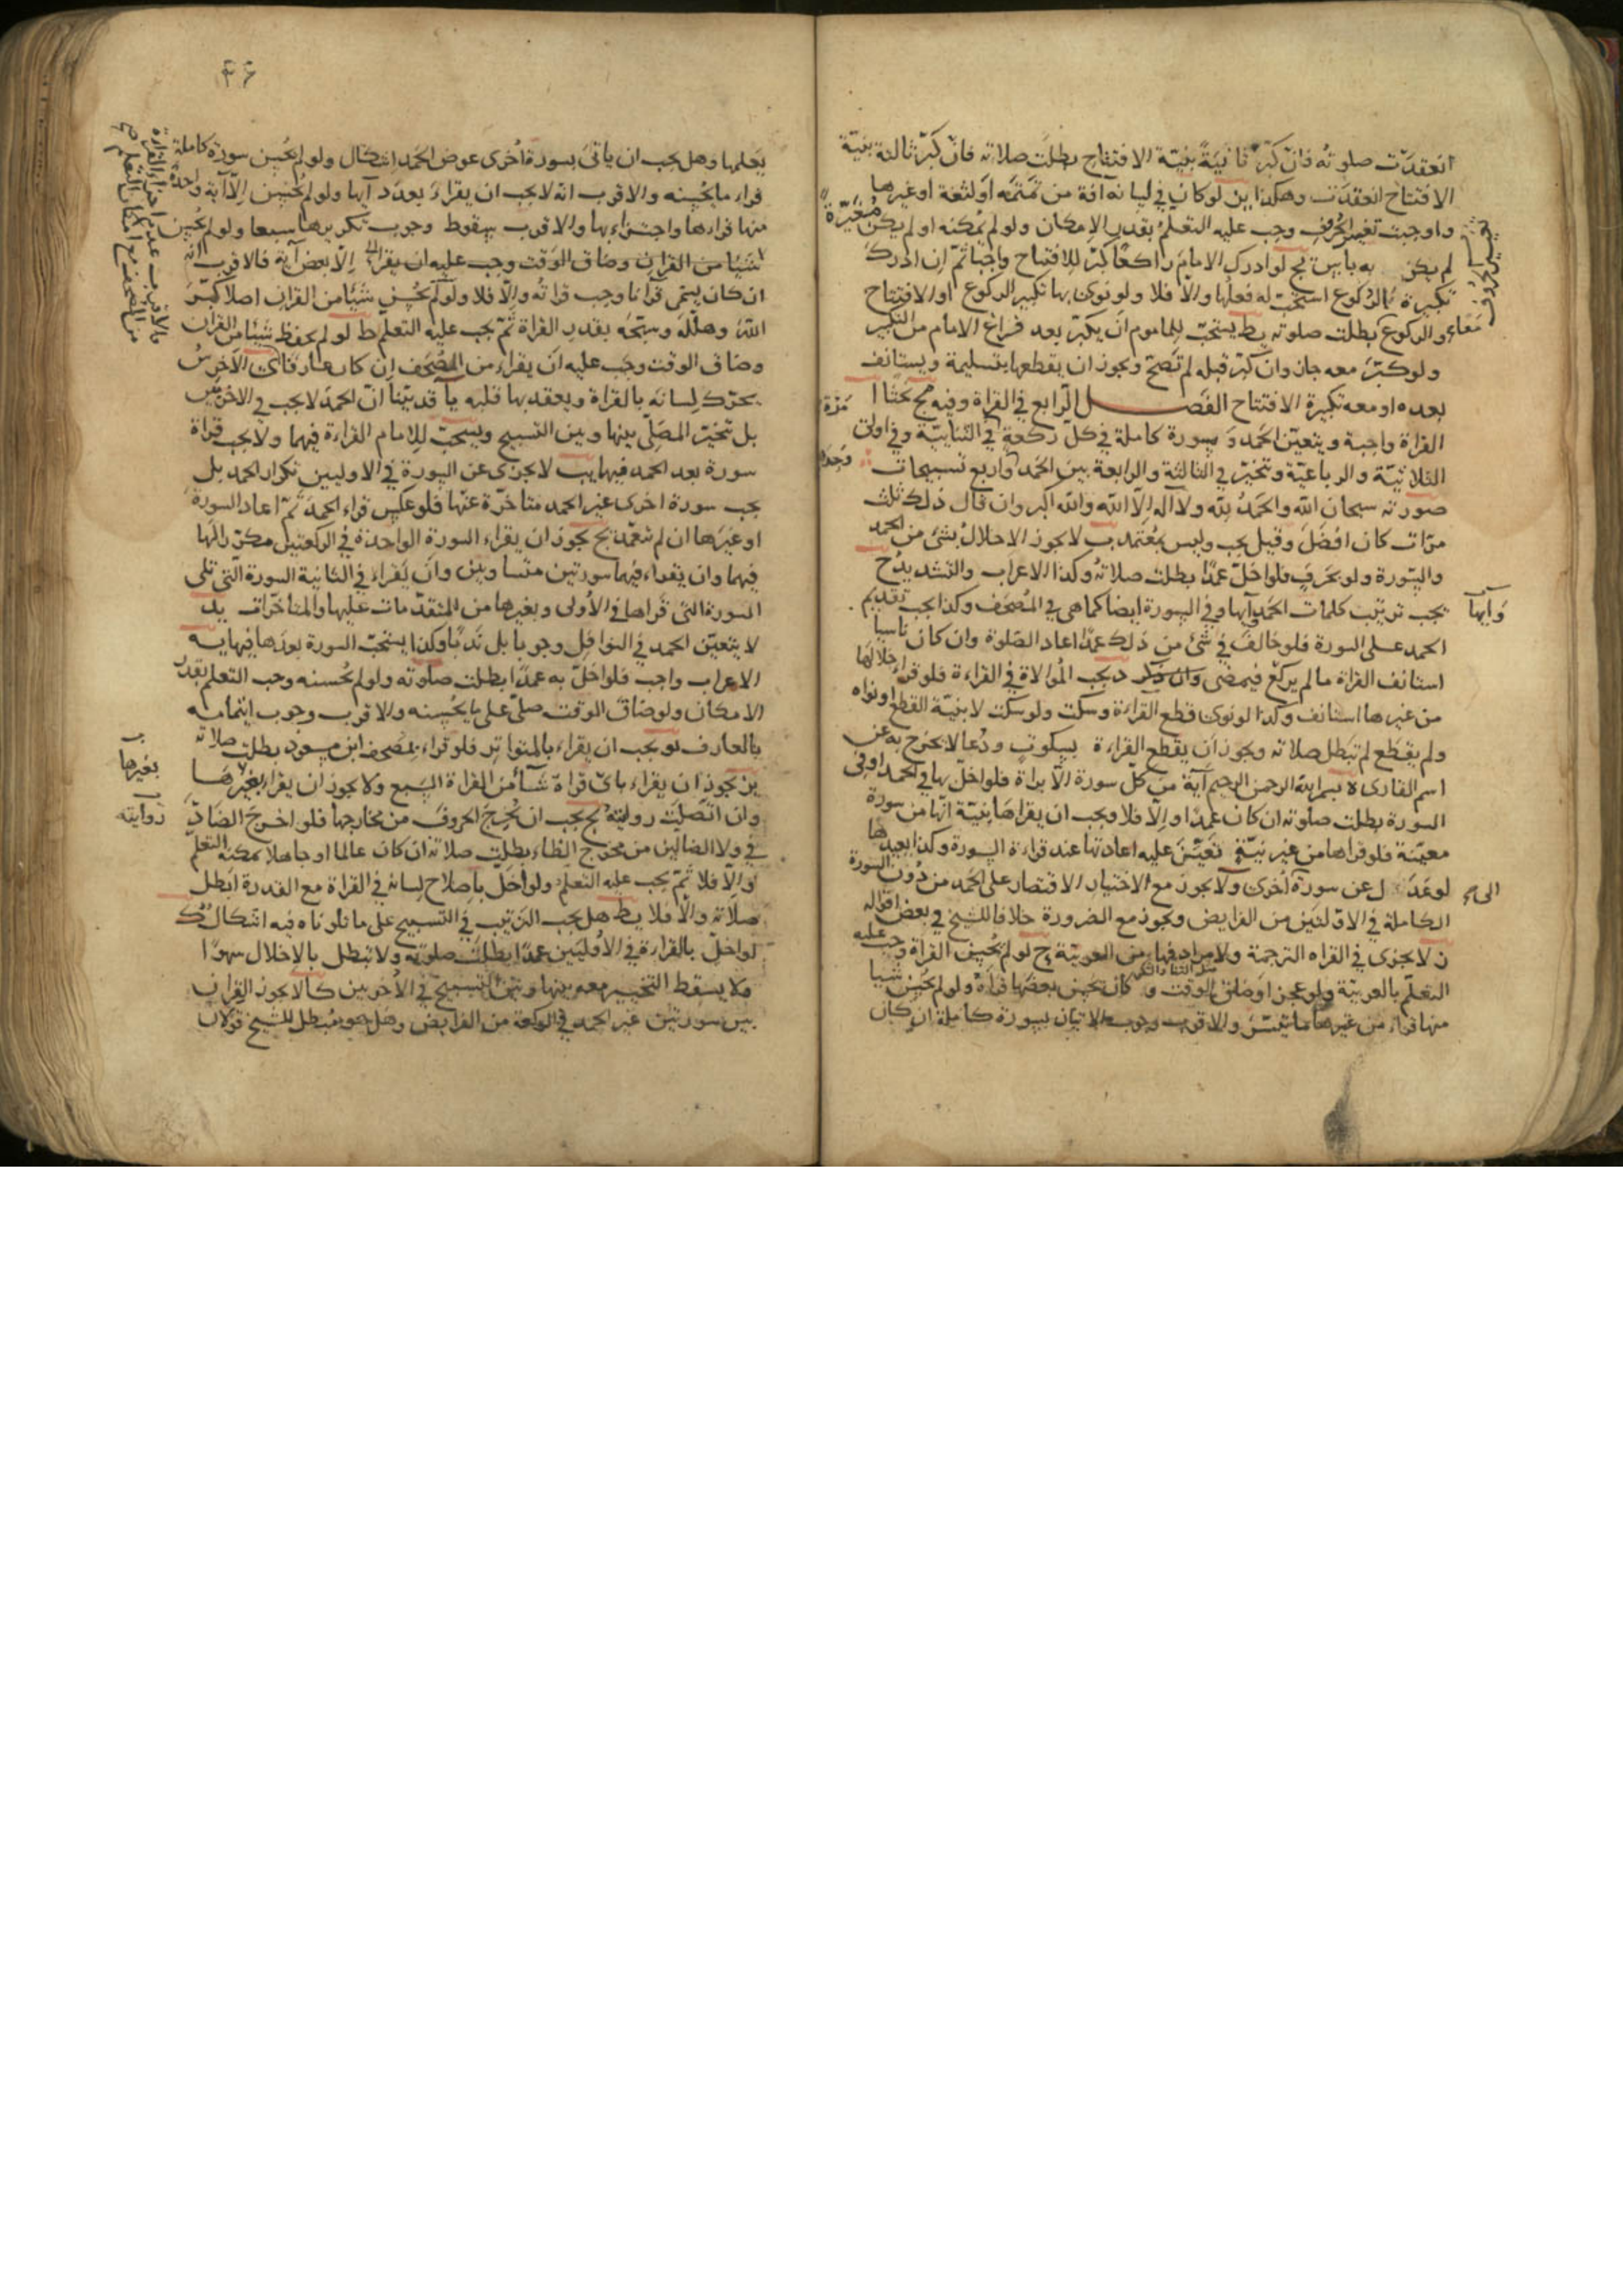 انعقدت صلوته فان كبر ثانية بنية الافتتاح بطلت صلاته فان كبر ثالثة بنية
الافتتاح انعقدت وهكذا يز لو كان في لسانه آفة من تمتمة او لثغة او غيرها
واوجبت تغير الحروف وجب عليه التعلم بقدر الامكان ولو لم يمكنه او لم يكن مغيرة
لم يكن به باس يح لو ادرك الامام راكعا كبر للافتتاح واجبا ثم ان ادرك
تكبيرة الركوع استحب له فعلها والا فلا ولو نوى بها تكبير الركوع او الافتتاح
معا
والركوع بطلت صلوته يط يستحب للماموم ان يكبر بعد فراغ الامام من التكبير
ولو كبر معه جاز وان كبر قبله لم تصح ويجوز ان يقطعها بتسليمة ويستانف
بعده او معه تكبيرة الافتتاح الفصل الرابع في القراة وفيه مج بحثا ا
القراة واجبة ويتعين الحمد و بسورة كاملة في كل ركعة في الثنائية وفي اولتى
الثلاثية والرباعية وتخير في الثالثة والرابعة بين الحمد واربع تسبيحات
مرة
وحده
صورته سبحان الله والحمد لله ولا اله الا الله والله اكبر وان قال ذلك ثلث
مرات كان افضل وقيل يجب وليس بمعتمد ب لا يجوز الاخلال بشئ من الحمد
والسورة ولو بحرف فلو اخل عمدا بطلت صلاته وكذا الاعراب والتشديد ج
يجب ترتيب كلمات الحمد وآيها وفي السورة ايضا كما هي في المصحف وكذا يجب تقديم
وآيها
الحمد على السورة فلو خالف في شئ من ذلك عمدا اعاد الصلوة وان كان ناسيا
استانف القراة ما لم يركع فيمضى وان ذكر د يجب الموالاة في القراءة فلو قرا خلالها
من غيرها استانف وكذا لو نوى قطع القراءة وسكت ولو سكت لا بنية القطع او نواه
ولم يقطع لم تبطل صلاته ويجوز ان يقطع القراءة بسكوت ودعا لا يخرج به عن
اسم القارى ه بسم الله الرحمن الرحيم آية من كل سورة الا براة فلو اخل بها في الحمد او في
السورة بطلت صلوته ان كان عمدا والا فلا ويجب ان يقراها بنية انها من سورة
معينة فلو قراها من غير نية تعين عليه اعادتها عند قراءة السورة وكذا يعيدها
لو عدل عن سورة الى اخرى و لا يجوز مع الاختيار الاقتصار على الحمد من دون السورة
الكاملة في الاولتين من الفرايض ويجوز مع الضرورة خلافا للشيخ في بعض اقواله
ز لا يجزى في القراه الترجمة ولا مرادفها من العربية ح لو لم يحسن القراة وجب عليه
التعلم بالعربية ولو عجز او ضاق الوقت و كان يحسن بعضها قراه ولو لم يحسن شيا
منها قراء من غيرها ما تيسر والاقرب وجوب الاتيان بسورة كاملة ان كان
يعلمها وهل يجب ان ياتى بسورة اخرى عوض الحمد اشكال ولو لم يحسن سورة كاملة
قراء ما يحسنه والاقرب انه لا يجب ان يقراء بعدد آيها ولو لم يحسن الا آية واحدة
منها قراءها واجتزاء بها والاقرب سقوط وجوب تكريرها سبعا ولو لم يحسن
شيا من القران وضاق الوقت وجب عليه ان يقرا الا بعض آية فالاقرب انه
ان كان يسمى قرآنا وجب قراته والا فلا ولو لم يحسن شيئا من القران اصلا كبر
الله وهلله وسبحه بقدر القراة ثم يجب عليه التعلم ط لو لم يحفظ شيئا من القران
وضاق الوقت وجب عليه ان يقراء من المصحف ان كان عارفا ى الاخرس
يحرك لسانه بالقراة ويعقد بها قلبه يا قد بينا ان الحمد لا يجب في الاخرتين
بل تخير المصلى بينها وبين التسبيح ويستحب للامام القراءة فيهما ولا يجب قراة
سورة بعد الحمد فيها يب لا يجزى عن السورة في الاوليين تكرار الحمد بل
يجب سورة اخرى غير الحمد متاخرة عنها فلو عكس قراء الحمد ثم اعاد السورة
او غيرها ان لم يتعمد يج يجوز ان يقراء السورة الواحدة في الركعتين مكررا لها
فيهما وان يقراء فيهما سورتين متساويين وان يقراء في الثانية السورة التى تلى
السورة التى قراها في الاولى وبغيرها من المتقدمات عليها والمتاخرات يد
لا يتعين الحمد في النوافل وجوبا بل ندبا وكذا يستحب السورة بعدها فيها يه
الاعراب واجب فلو اخل به عمدا بطلت صلوته ولو لم يحسنه وجب التعلم بقدر
الامكان ولو ضاق الوقت صلى على ما يحسنه والاقرب وجوب ايتمامه
بالعارف يو يجب ان يقراء بالمتواتر فلو قراء بمصحف ابن مسعود بطلت صلاته
يز يجوز ان يقراء باى قراة شاء من القراة السبع ولا يجوز ان يقرا بغيرها
بغيرها
وان اتصلت رواية يح يجب ان يخرج الحروف من مخارجها فلو اخرج الضاد
روايته
في ولا الضالين من مخرج الظاء بطلت صلاته ان كان عالما او جاهلا يمكنه التعلم
والا فلا ثم يجب عليه التعلم ولو اخل باصلاح لسانه في القراة مع القدرة ابطل
صلاته والا فلا يط هل يجب الترتيب في التسبيح على ما تلوناه فيه اشكال ك
لو اخل بالقراءة في الاوليين عمدا بطلت صلوته ولا تبطل بالاخلال سهوا
ولا يسقط التخيير معه بينها وبين التسبيح في الاخريين كا لا يجوز القران
بين سورتين غير الحمد في الركعة من الفرايض وهل هو مبطل للشيخ قولان